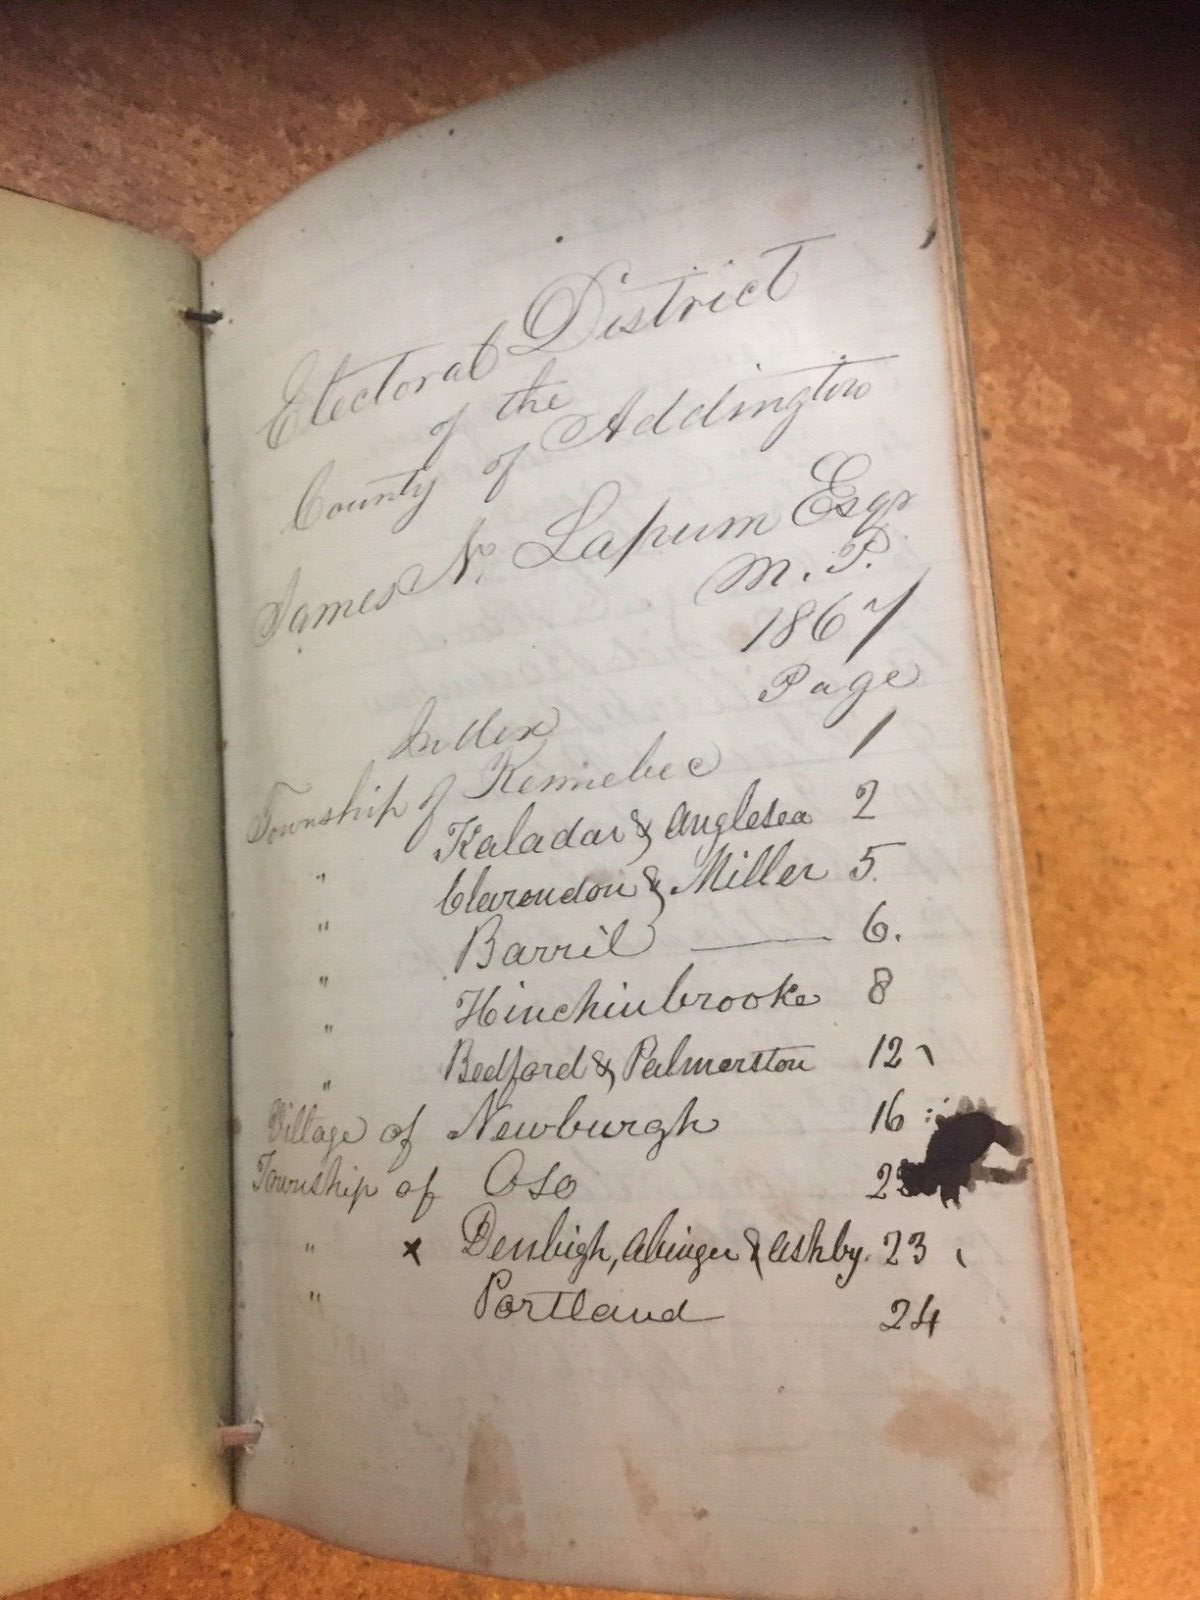 Electoral District
of the
County of Addington
James N. Lapum Esqr
M. P.
1867
Page
Index
Township of Kennebec 1
Kaladar & Anglesea 2
" Clarendon & Miller 5.
" Barril — 6.
" Hinchinbrooke 8
" Bedford & Palmerston 12
" 
Village of Newburgh 16
Township of Oso
" x Denbigh, Abinger & Ashby. 23
" Portland 24